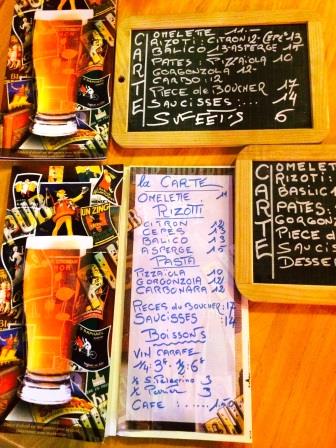 CARTE
OMELETTE 11-
RIZOTI: CITRON 12- CEPE 13
BALICO 13- ASPERGE 15
PATES: PIZZAIOLA 10
GORGONZOLA 12-
CARBO: 12
PIECE de BOUCHER 17
SAUCISSES:... 14
6
la CARTE
OMELETTE 11
RIZOTTI
CITRON 12
CEPES 13
BALICO 13
ASPERGE 15
PASTA
PIZZAIOLA 10
GORGONZOLA 12
CARBONARA 12
PIECES du BOUCHER: 17
SAUCISSES :14
BOISSONS
VIN CARAFE
1/4 3€ 1/2 6€
1/2 S. Pelegrino 3
1/2 Perrier 3
CAFE : ..... 1,50
CARTE
OMELE
RIZOTI:
BASLIC
PATES:
GORGON
PIECE D
SAUCIS
DESSER
UN ZING
PUB